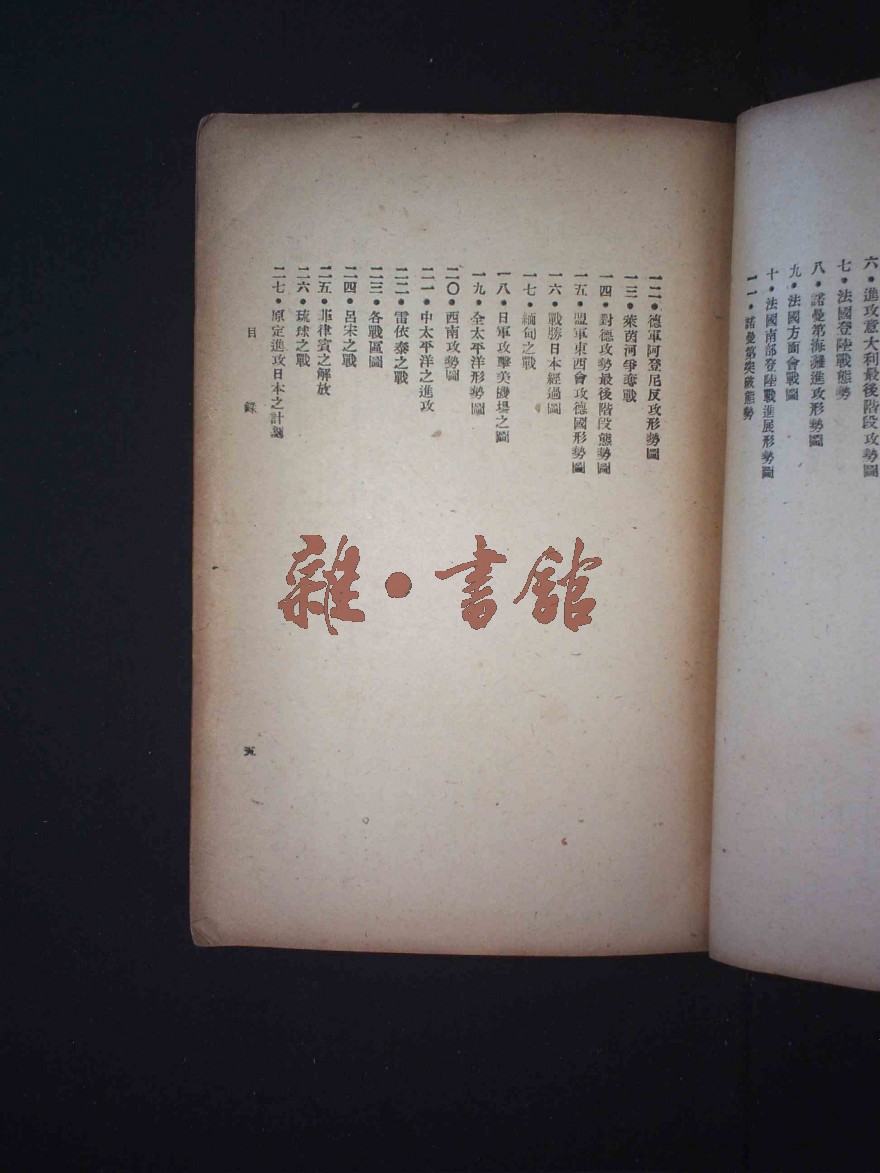 六・進攻意大利最後階段攻勢圖
七・法國登陸戰態勢
八・諾曼第海灘進攻形勢圖
九・法國方面會戰圖
十・法國南部登陸戰進展形勢圖
一一・諾曼第突破態勢
一二・德軍阿登尼反攻形勢圖
一三・萊茵河爭奪戰
一四・對德攻勢最後階段態勢圖
一五・盟軍東西會攻德國形勢圖
一六・戰勝日本經過圖
一七・緬甸之戰
一八・日軍攻擊美機場之圖
一九・全太平洋形勢圖
二〇・西南攻勢圖
二一・中太平洋之進攻
二二・雷依泰之戰
二三・各戰區圖
二四・呂宋之戰
二五・菲律賓之解放
二六・琉球之戰
二七・原定進攻日本之計劃
目錄
五
雜・書館